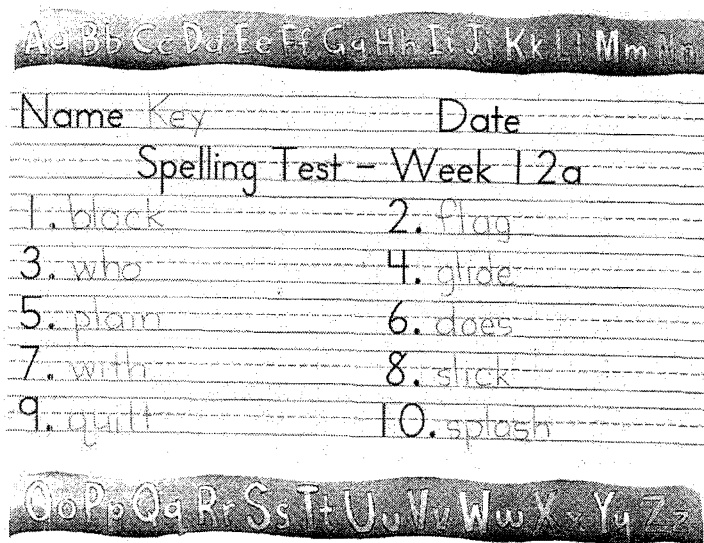 Aa Bb Cc Dd Ee Ff Gg Hh Ii Jj Kk Ll Mm Nn
Name Key Date
Spelling Test - Week 12a
1. block 2. flag
3. who 4. glide
5. plain 6. does
7. with 8. slick
9. quilt 10. splash
Oo Pp Qq Rr Ss Tt Uu Vv Ww Xx Yy Zz